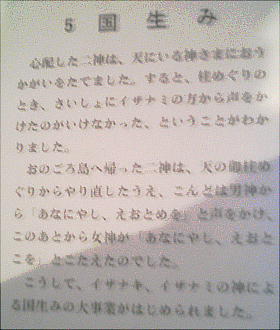 5 国生み
心配した二神は、天にいる神さまにおう
かがいをたてました。すると、柱めぐりの
とき、さいしょにイザナミの方から声をか
けたのがいけなかった、ということがわか
りました。
おのごろ島へ帰った二神は、天の御柱め
ぐりからやり直したうえ、こんとは男神か
ら「あなにやし、えおとめを」と声をかけ、
このあとから女神が「あなにやし、えおと
こを」とこたえたのでした。
こうして、イザナキ、イザナミの神によ
る国生みの大事業がはじめられました。